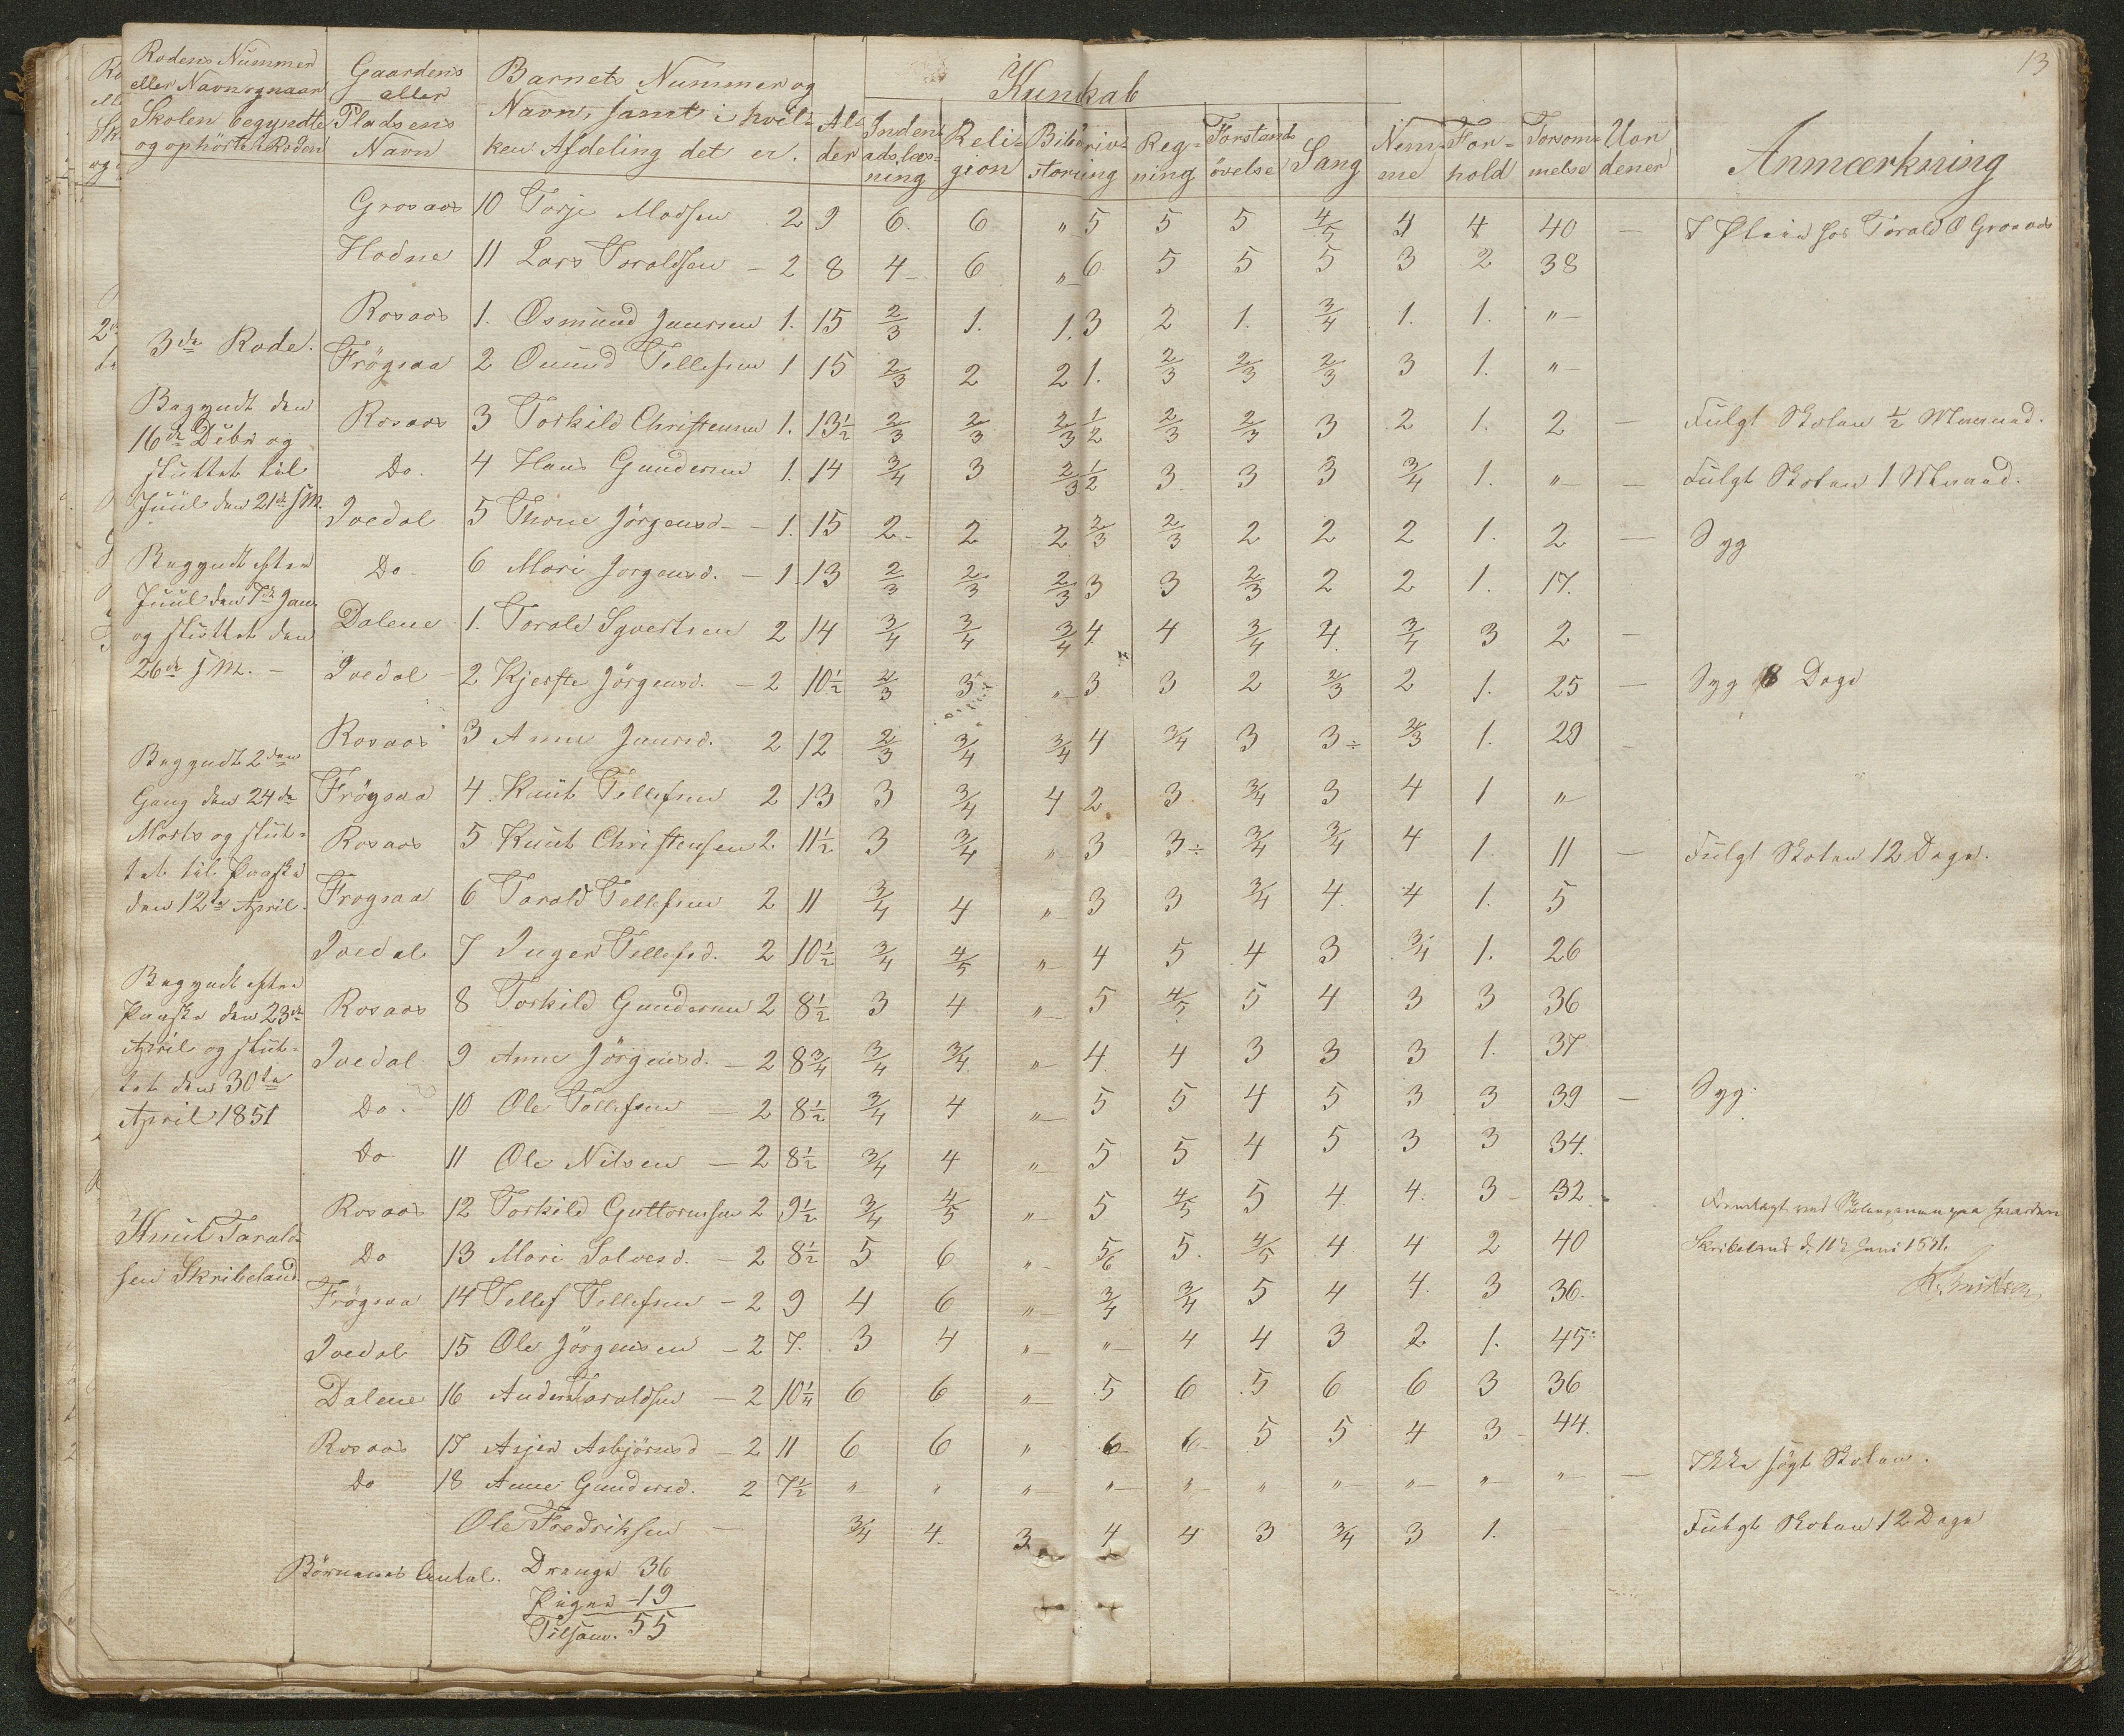 13
Rodens Nummer eller Navn og naar Skolen begyndte og ophörte i Roden | Gaardens eller Pladsens Navn | Barnets Nummer og Navn, samt i hvilken Afdeling det er. | Alder | Kundskab | Indenadslæsning | Religion | Bibelstorie | Skrivning | Regning | Forstandsövelse | Sang | Nemme | Forhold | Forsömmelse | Uordener | Anmærkning
Grosaas 10 Torje Madsen 2 9 6 6 „ 5 5 5 4/5 4 4 40 — hos Torald O Grosaas
Hodne 11 Lars Toraldsen — 2 8 4 6 „ 6 5 5 5 3 2 38
3de Rode.
Rosaas 1. Osmund Jensen 1. 15 2/3 1. 1. 3 2 1. 3/4 1. 1. „
Frögsaa 2 Omund Tellefsen 1 15 2/3 2 2 1. 2/3 2/3 2/3 3 1. „
Begyndt den
16de Debr og
sluttet til
Juul den 21de s M.
Rosaas 3 Torkild Christensen 1. 13½ 2/3 2/3 2/3 1/2 2/3 2/3 3 2 1. 2 — Fulgt Skolen ½ Maaned.
Do. 4 Hans Gundersen 1. 14 3/4 3 2/3 1/2 3 3 3 3/4 1. „ — Fulgt Skolen 1 Maaned.
Ivedal 5 Thone Jörgensd — 1. 15 2 2 2 2/3 2/3 2 2 2 1. 2 — Syg
Begyndt efter
Juul den 7de Jan.
og sluttet den
26de s M. —
Do 6 Mari Jorgensd. — 1 13 2/3 2/3 2/3 3 3 2/3 2 2 1. 17.
Dalene 1. Torald Syvertsen 2 14 3/4 3/4 3/4 4 4 3/4 4. 3/4 3 2 —
Ivedal 2 Kjerste Jörgensd. — 2 10½ 2/3 3 „ 3 3 2 2/3 2 1. 25 — Syg 8 Dage
Rosaas 3 Anne Jensd. 2 12 2/3 3/4 3/4 4 3/4 3 3÷ 2/3 1. 29
Begyndt 2den
Gang den 24de
Marts og slut-
tet til Paaske
den 12te April.
Frögsaa 4. Knut Tellefsen 2 13 3 3/4 4 2 3 3/4 3 4 1 „
Rosaas 5 Knut Christensen 2 11½ 3 3/4 „ 3 3÷ 3/4 3/4 4 1. 11 — Fulgt Skolen 12 Dage.
Frogsaa 6 Tarald Tellefsen 2 11 3/4 4 „ 3 3 3/4 4. 4 1. 5
Ivedal 7 Inger Tellefsd. 2 10½ 3/4 4/5 „ 4 5 4 3 3/4 1. 26
Begyndt efter
Paaske den 23de
April og slut-
tet den 30te
April 1851
Rosaas 8 Torkild Gundersen 2 8½ 3 4 „ 5 4/5 5 4 3 3 36
Ivedal 9 Anne Jörgensd. — 2 8¾ 3/4 3/4 „ 4. 4 3 3 3 1. 37
Do. 10 Ole Tollefsen — 2 8½ 3/4 4 „ 5 5 4 5 3 3 39 — Syg.
Do 11 Ole Nilsen — 2 8½ 3/4 4 „ 5 5 4 5 3 3 34.
Rosaas 12 Torkild Guttormsen 2 9½ 3/4 4/5 „ 5 4/5 5 4 4. 3 32
Knut Tarald-
sen Skribeland.
Do 13 Mari Salvesd. — 2 8½ 5 6 „ 5/6 5. 4/5 4 4 2 40
Fremlagt ved Skoleexamen paa Gaarden
Skribeland d. 11te Juni 1851.
Frögsaa 14 Tellef Tellefsen — 2 9 4 6 „ 3/4 3/4 5 4 4. 3 36.
Ivedal 15 Ole Jörgensen — 2 7. 3 4 „ „ 4 4 3 2 1. 45
Dalene 16 Anders Taraldsen — 2 10¼ 6 6 „ 5 6 5 6 6 3 36
Rosaas 17 Asjer Asbjörnsd — 2 11 6 6 „ 6 6 5 5 4 3 44.
Do 18 Anne Gundersd. 2 7½ „ „ „ „ „ „ „ „ „ „ — Ikke sögt Skolen.
Ole Fredriksen — 3/4 4. 3 4 4 3 3/4 3 1. Fulgt Skolen 12 Dage
Börnenes Antal. Drenge 36
Piger — 19
Tilsam. 55